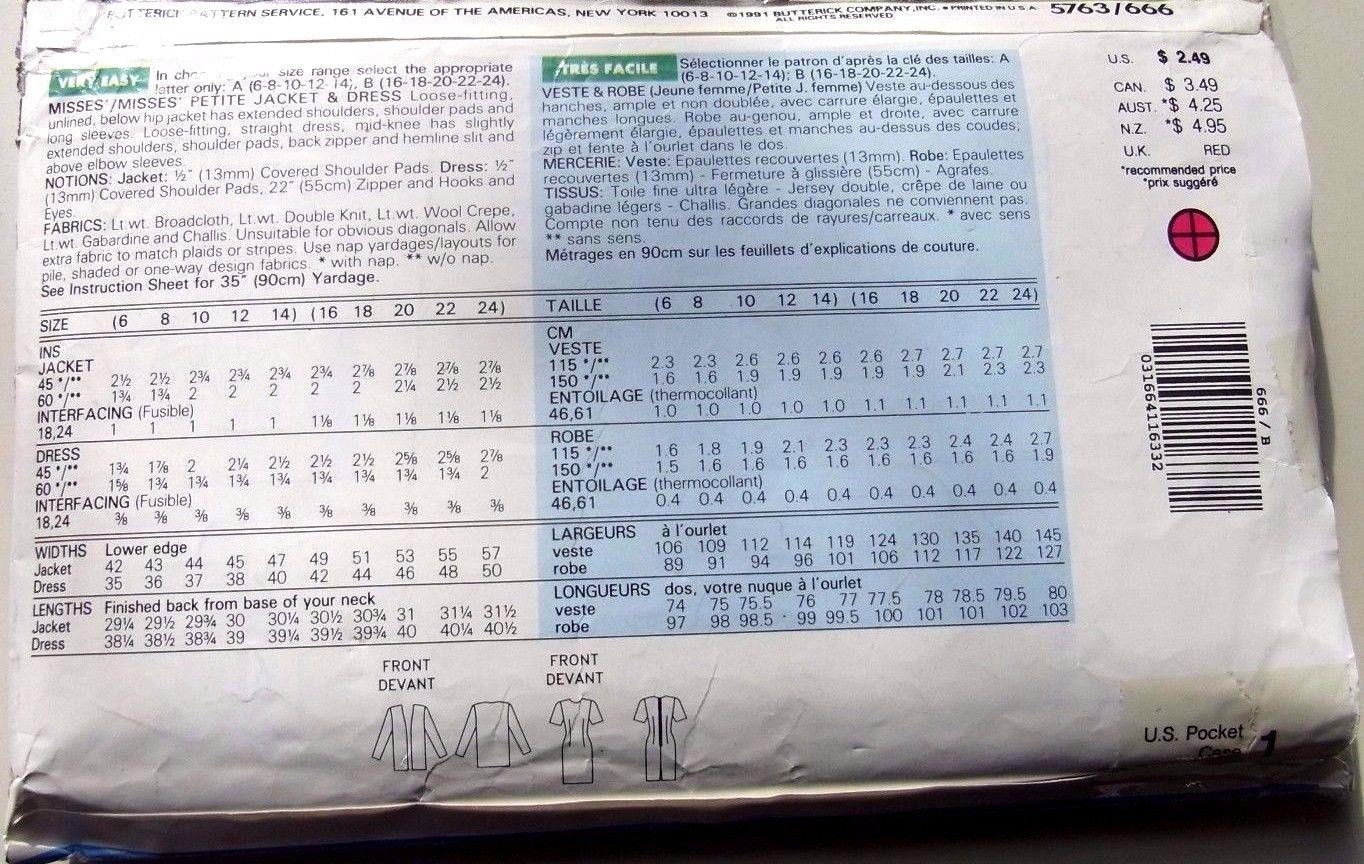 PATTERN SERVICE, 161 AVENUE OF THE AMERICAS, NEW YORK 10013 ©1991 BUTTERICK COMPANY, INC. • PRINTED IN U S A 5763/666
ALL RIGHTS RESERVED
VERY EASY
In size range select the appropriate
letter only: A (6-8-10-12-14), B (16-18-20-22-24).
MISSES'/MISSES' PETITE JACKET & DRESS Loose-fitting,
unlined, below hip jacket has extended shoulders, shoulder pads and
long sleeves. Loose-fitting, straight dress, mid-knee has slightly
extended shoulders, shoulder pads, back zipper and hemline slit and
above elbow sleeves.
NOTIONS: Jacket: ½" (13mm) Covered Shoulder Pads. Dress: ½"
(13mm) Covered Shoulder Pads, 22" (55cm) Zipper and Hooks and
Eyes.
FABRICS: Lt wt. Broadcloth, Lt wt. Double Knit, Lt wt. Wool Crepe,
Lt wt. Gabardine and Challis. Unsuitable for obvious diagonals. Allow
extra fabric to match plaids or stripes. Use nap yardages/layouts for
pile, shaded or one-way design fabrics. * with nap. ** w/o nap.
See Instruction Sheet for 35" (90cm) Yardage.
SIZE (6 8 10 12 14) (16 18 20 22 24)
INS
JACKET
45 */** 2½ 2½ 2¾ 2¾ 2¾ 2¾ 2⅞ 2⅞ 2⅞ 2⅞
60 */** 1¾ 1¾ 2 2 2 2 2 2¼ 2½ 2½
INTERFACING (Fusible)
18,24 1 1 1 1 1 1⅛ 1⅛ 1⅛ 1⅛ 1⅛
DRESS
45 */** 1¾ 1⅞ 2 2¼ 2½ 2½ 2½ 2⅝ 2⅝ 2⅞
60 */** 1⅝ 1¾ 1¾ 1¾ 1¾ 1¾ 1¾ 1¾ 1¾ 2
INTERFACING (Fusible)
18,24 ⅜ ⅜ ⅜ ⅜ ⅜ ⅜ ⅜ ⅜ ⅜ ⅜
WIDTHS Lower edge
Jacket 42 43 44 45 47 49 51 53 55 57
Dress 35 36 37 38 40 42 44 46 48 50
LENGTHS Finished back from base of your neck
Jacket 29¼ 29½ 29¾ 30 30¼ 30½ 30¾ 31 31¼ 31½
Dress 38¼ 38½ 38¾ 39 39¼ 39½ 39¾ 40 40¼ 40½
TRÈS FACILE
Sélectionner le patron d'après la clé des tailles: A
(6-8-10-12-14); B (16-18-20-22-24).
VESTE & ROBE (Jeune femme/Petite J. femme) Veste au-dessous des
hanches, ample et non doublée, avec carrure élargie, épaulettes et
manches longues. Robe au-genou, ample et droite, avec carrure
légèrement élargie, épaulettes et manches au-dessus des coudes;
zip et fente à l'ourlet dans le dos.
MERCERIE: Veste: Epaulettes recouvertes (13mm). Robe: Epaulettes
recouvertes (13mm) - Fermeture à glissière (55cm) - Agrafes.
TISSUS: Toile fine ultra légère - Jersey double, crêpe de laine ou
gabadine légers - Challis. Grandes diagonales ne conviennent pas.
Compte non tenu des raccords de rayures/carreaux. * avec sens
** sans sens.
Métrages en 90cm sur les feuillets d'explications de couture.
TAILLE (6 8 10 12 14) (16 18 20 22 24)
CM
VESTE
115 */** 2.3 2.3 2.6 2.6 2.6 2.6 2.7 2.7 2.7 2.7
150 */** 1.6 1.6 1.9 1.9 1.9 1.9 1.9 2.1 2.3 2.3
ENTOILAGE (thermocollant)
46,61 1.0 1.0 1.0 1.0 1.0 1.1 1.1 1.1 1.1 1.1
ROBE
115 */** 1.6 1.8 1.9 2.1 2.3 2.3 2.3 2.4 2.4 2.7
150 */** 1.5 1.6 1.6 1.6 1.6 1.6 1.6 1.6 1.6 1.9
ENTOILAGE (thermocollant)
46,61 0.4 0.4 0.4 0.4 0.4 0.4 0.4 0.4 0.4 0.4
LARGEURS à l'ourlet
veste 106 109 112 114 119 124 130 135 140 145
robe 89 91 94 96 101 106 112 117 122 127
LONGUEURS dos, votre nuque à l'ourlet
veste 74 75 75.5 76 77 77.5 78 78.5 79.5 80
robe 97 98 98.5 99 99.5 100 101 101 102 103
FRONT
DEVANT
FRONT
DEVANT
U.S. $ 2.49
CAN. $ 3.49
AUST. *$ 4.25
N.Z. *$ 4.95
U.K. RED
*recommended price
*prix suggéré
031664116332
666 / B
U.S. Pocket
Case 1